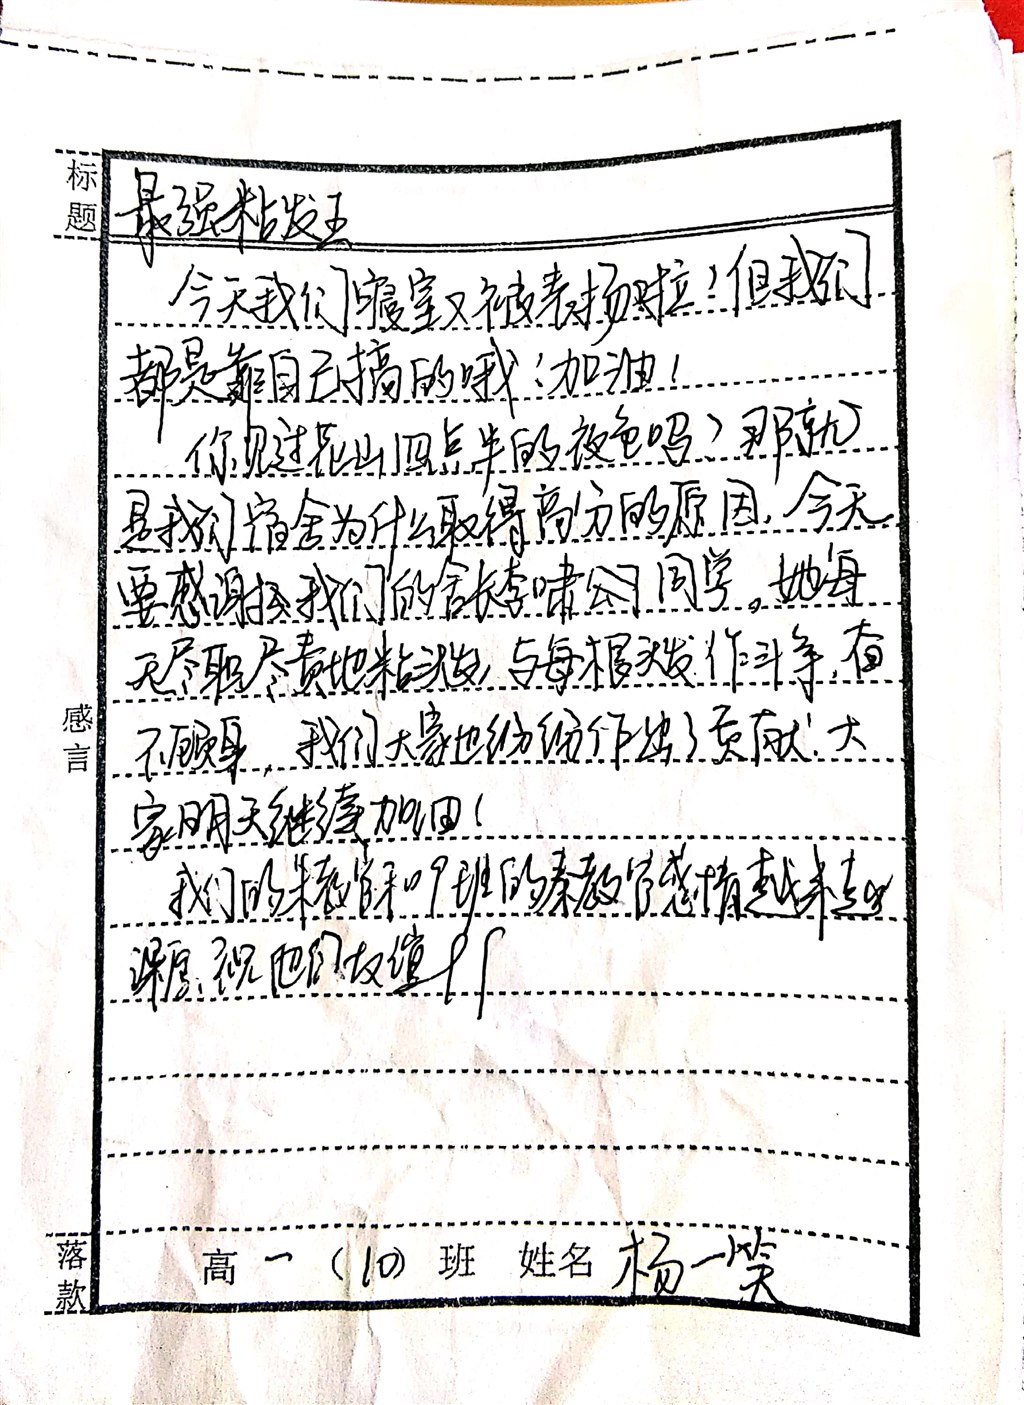 标题
最强粘发王
今天我们寝室又被表扬啦！但我们
都是靠自己搞的哦！加油！
你见过花山四点半的夜色吗？那就
是我们宿舍为什么取得高分的原因，今天
要感谢我们的舍长李啸同学。她每
天尽职尽责地粘头发，与每根头发作斗争，奋
不顾身，我们大家也纷纷作出了贡献，大
家明天继续加油！
我们的朱教官和9班的秦教官感情越来越
深厚，祝他们友谊
感言
落款
高一（10）班 姓名 杨一笑